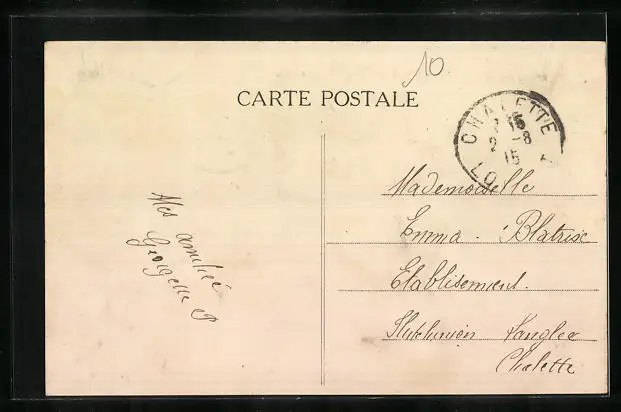 10
CARTE POSTALE
CHALETTE
15
2 -8
15
LO
Mademoiselle
Emma
Etablissement
Hutchinson Langlee
Chalette
Mes amitiés
Georgette